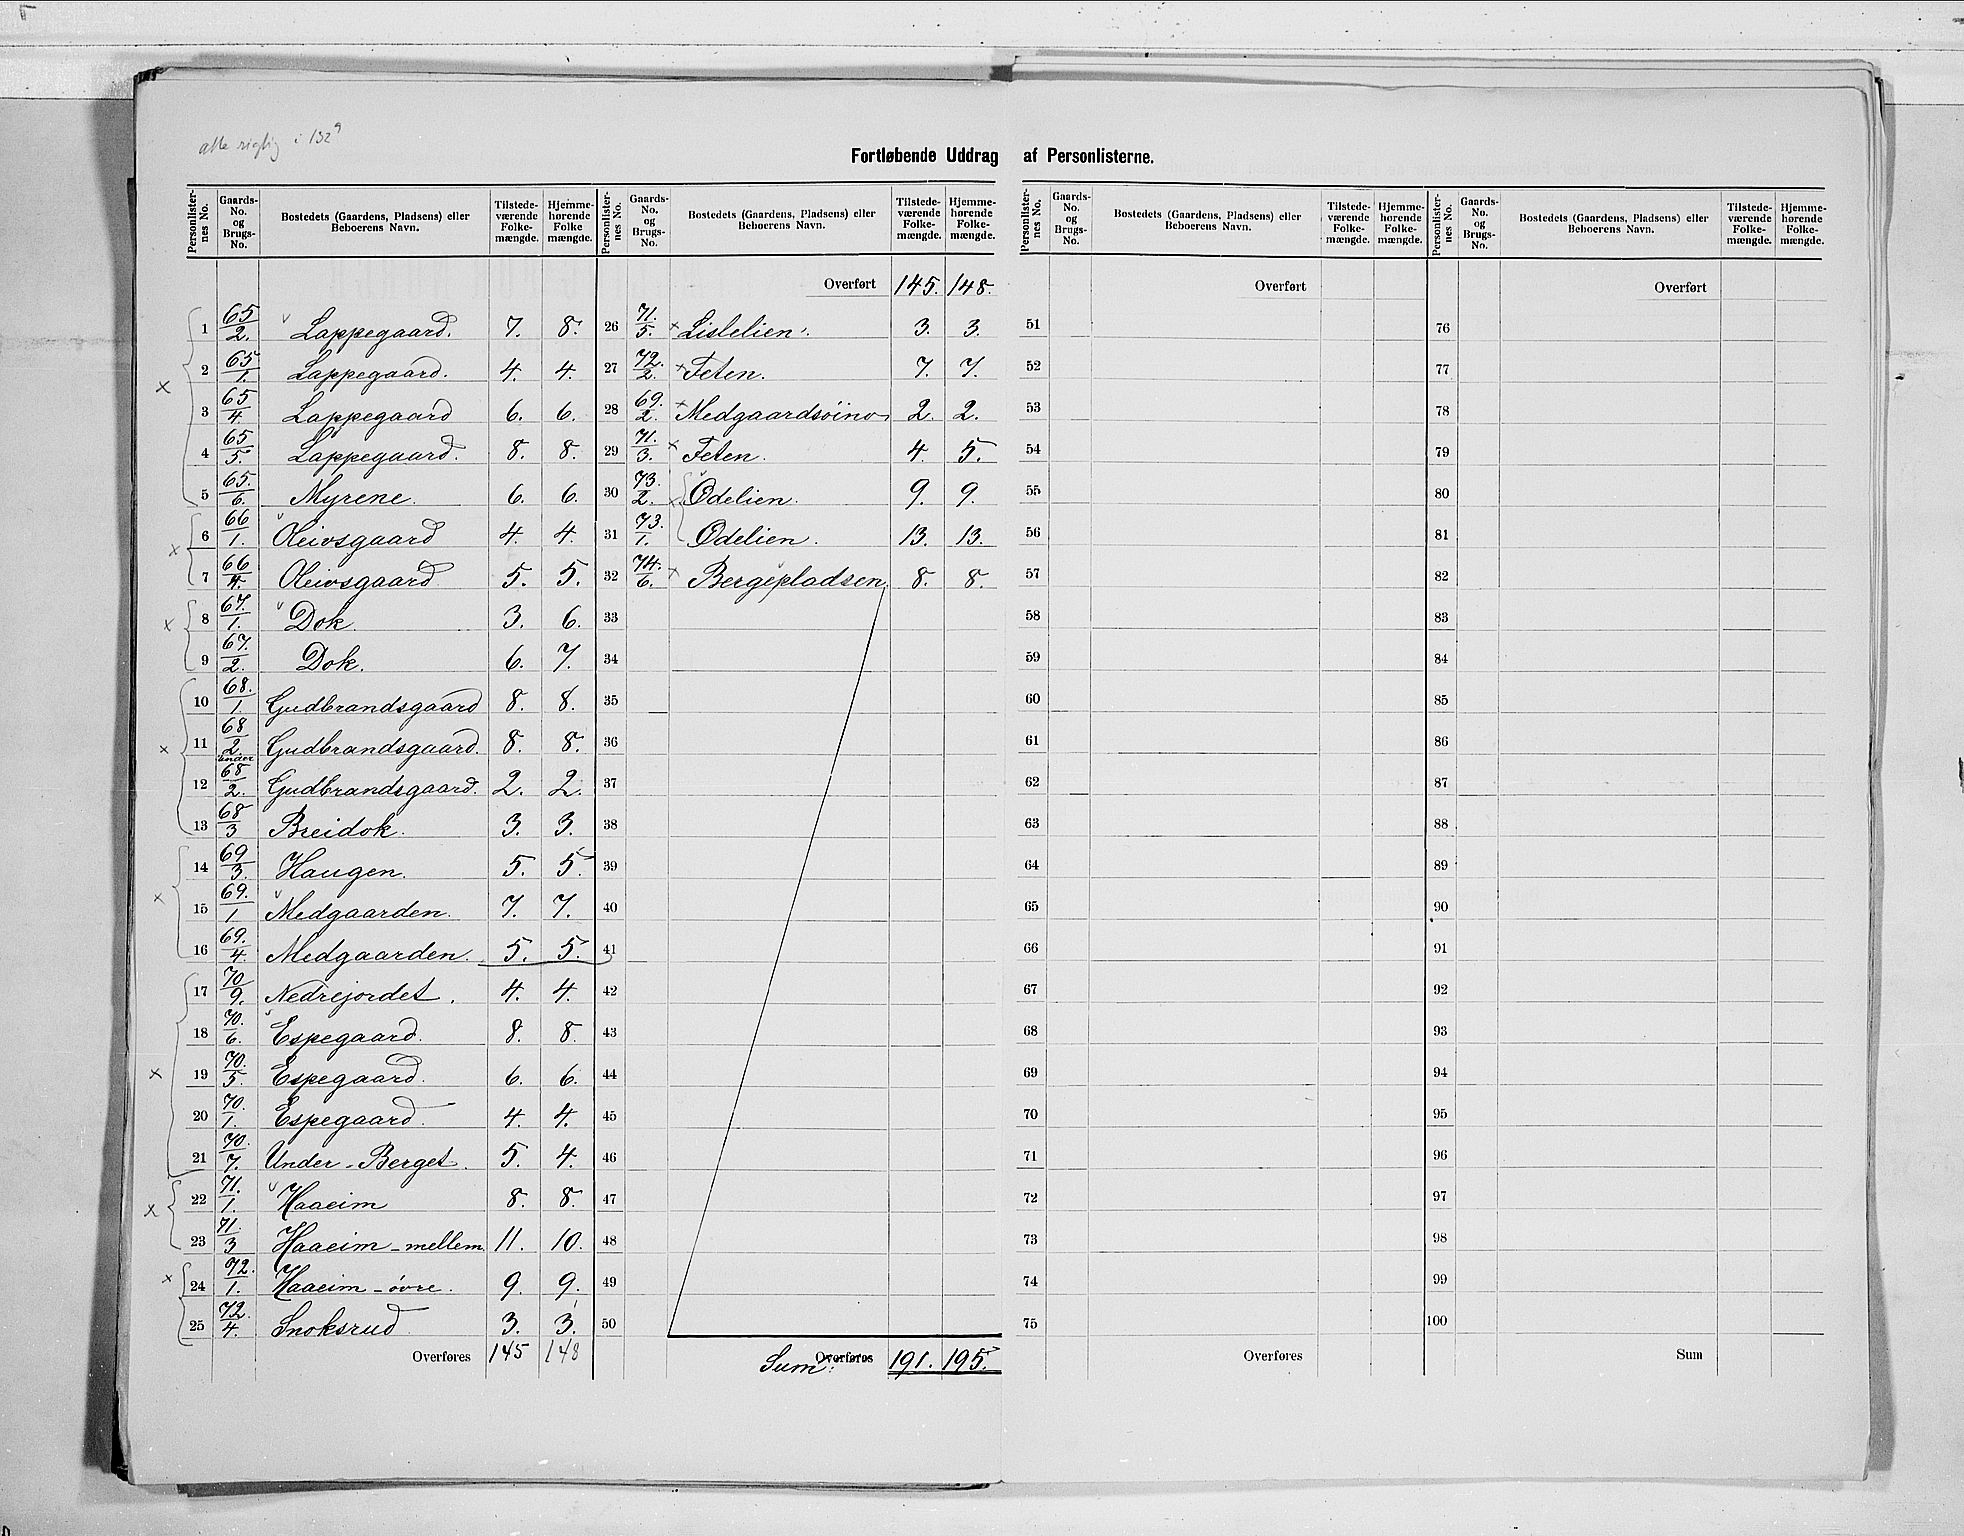 alle rigtig i 132 9
Fortløbende Uddrag af Personlisterne.
Personlister-nes No. | Gaards-No. og Brugs-No. | Bostedets (Gaardens, Pladsens) eller Beboerens Navn. | Tilstede-værende Folke-mængde. | Hjemme-hørende Folke mængde. | Personlister-nes No. | Gaards-No. og Brugs-No. | Bostedets (Gaardens, Pladsens) eller Beboerens Navn. | Tilstede-værende Folke-mængde. | Hjemme-hørende Folke-mængde. | Personlister-nes No. | Gaards-No. og Brugs-No. | Bostedets (Gaardens, Pladsens) eller Beboerens Navn. | Tilstede-værende Folke-mængde. | Hjemme-hørende Folke-mængde. | Personlister-nes No. | Gaards-No. og Brugs-No. | Bostedets (Gaardens, Pladsens) eller Beboerens Navn. | Tilstede-værende Folke-mængde. | Hjemme-hørende Folke-mængde.
Overført 145. 148. Overført Overført
1 65/2. Lappegaard. 7. 8. 26 71./5. × Lislelien. 3. 3. 51 76
2 65/1. Lappegaard. 4. 4. 27 72./2. × Feten. 7. 7. 52 77
3 65/4. Lappegaard 6. 6. 28 69./2. × Medgaardsöino 2. 2. 53 78
4 65/5. Lappegaard. 8. 8. 29 71./3. × Feten. 4. 5. 54 79
5 65./6. Myrene. 6. 6. 30 73./2. × Ødelien. 9. 9. 55 80
6 66/1. Oleivsgaard 4. 4. 31 73./1. Ødelien. 13. 13. 56 81
7 66/4. Oleivsgaard 5. 5. 32 74./6. × Bergepladsen. 8. 8. 57 82
8 67./1. Dok. 3. 6. 33 58 83
9 67./2. Dok. 6. 7. 34 59 84
10 68./1. Gudbrandsgaard 8. 8. 35 60 85
11 68/2. Gudbrandsgaard. 8. 8. 36 61 86
12 under 68/2. Gudbrandsgaard. 2. 2. 37 62 87
13 68/3 Breidok. 3. 3. 38 63 88
14 69/3. Haugen. 5. 5. 39 64 89
15 69./1. Medgaarden. 7. 7. 40 65 90
16 69./4. Medgaarden. 5. 5. 41 66 91
17 70/9. Nedrejordet. 4. 4. 42 67 92
18 70./6. Espegaard. 8. 8. 43 68 93
19 70./5. Espegaard. 6. 6. 44 69 94
20 70./1. Espegaard. 4. 4. 45 70 95
21 70./7. Under-Berget. 5. 4. 46 71 96
22 71./1. Haaeim 8. 8. 47 72 97
23 71./3 Haaeim-mellem. 11. 10. 48 73 98
24 72./1. Haaeim-övre. 9. 9. 49 74 99
25 72./4. Snoksrud 3. 3. 50 75 100
Overføres 145 148 Sum: Overføres 191. 195. Overføres Sum